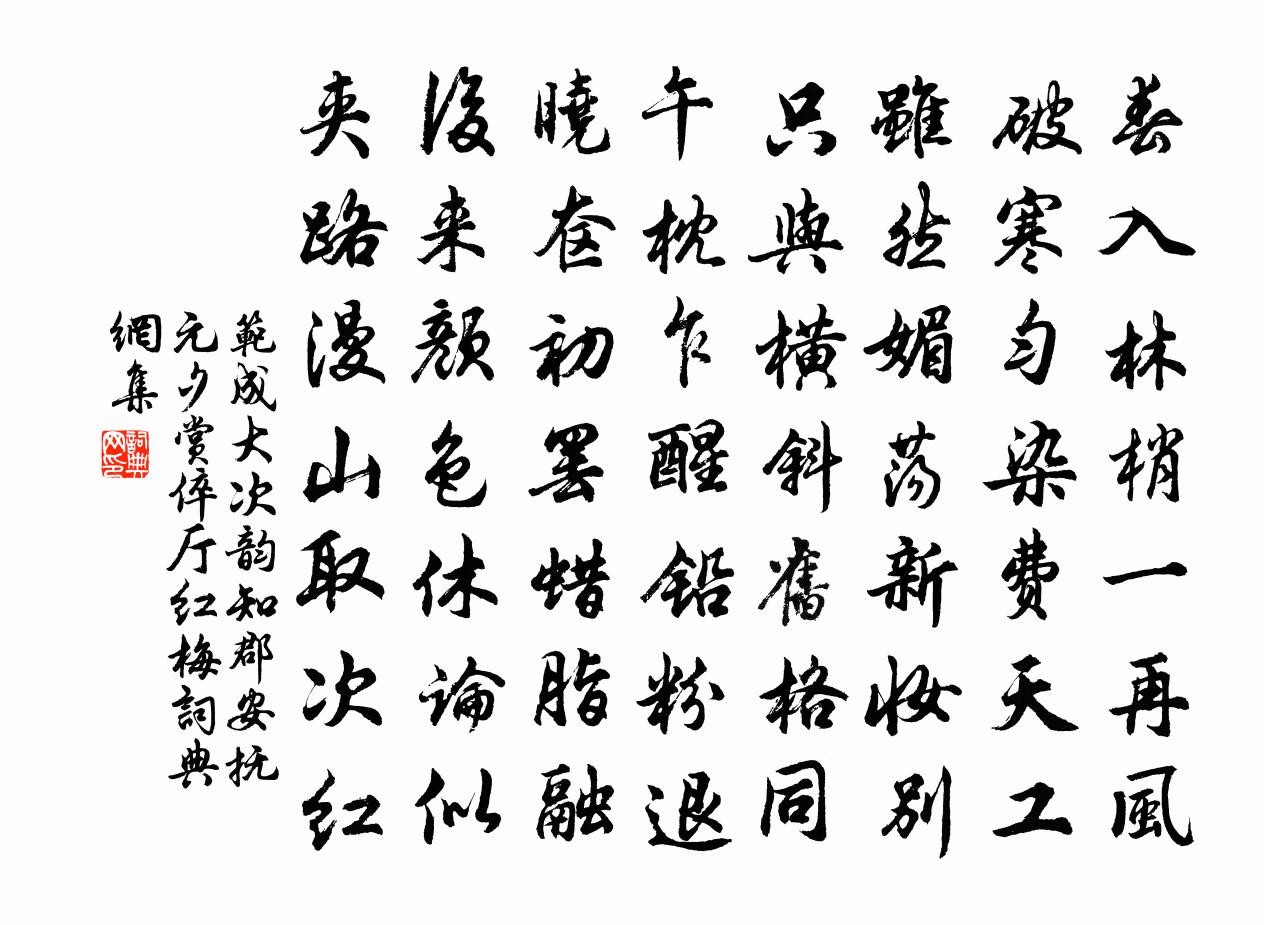 春入林梢一再風
破寒勻染費天工
雖然媚蕩新妝別
只與橫斜舊格同
午枕乍醒鉛粉退
曉奁初罢蜡脂融
後来顏色休論似
夹路漫山取次红
範成大次韵知郡安抚
元夕赏倅厅红梅詞典
網集
詞典网印